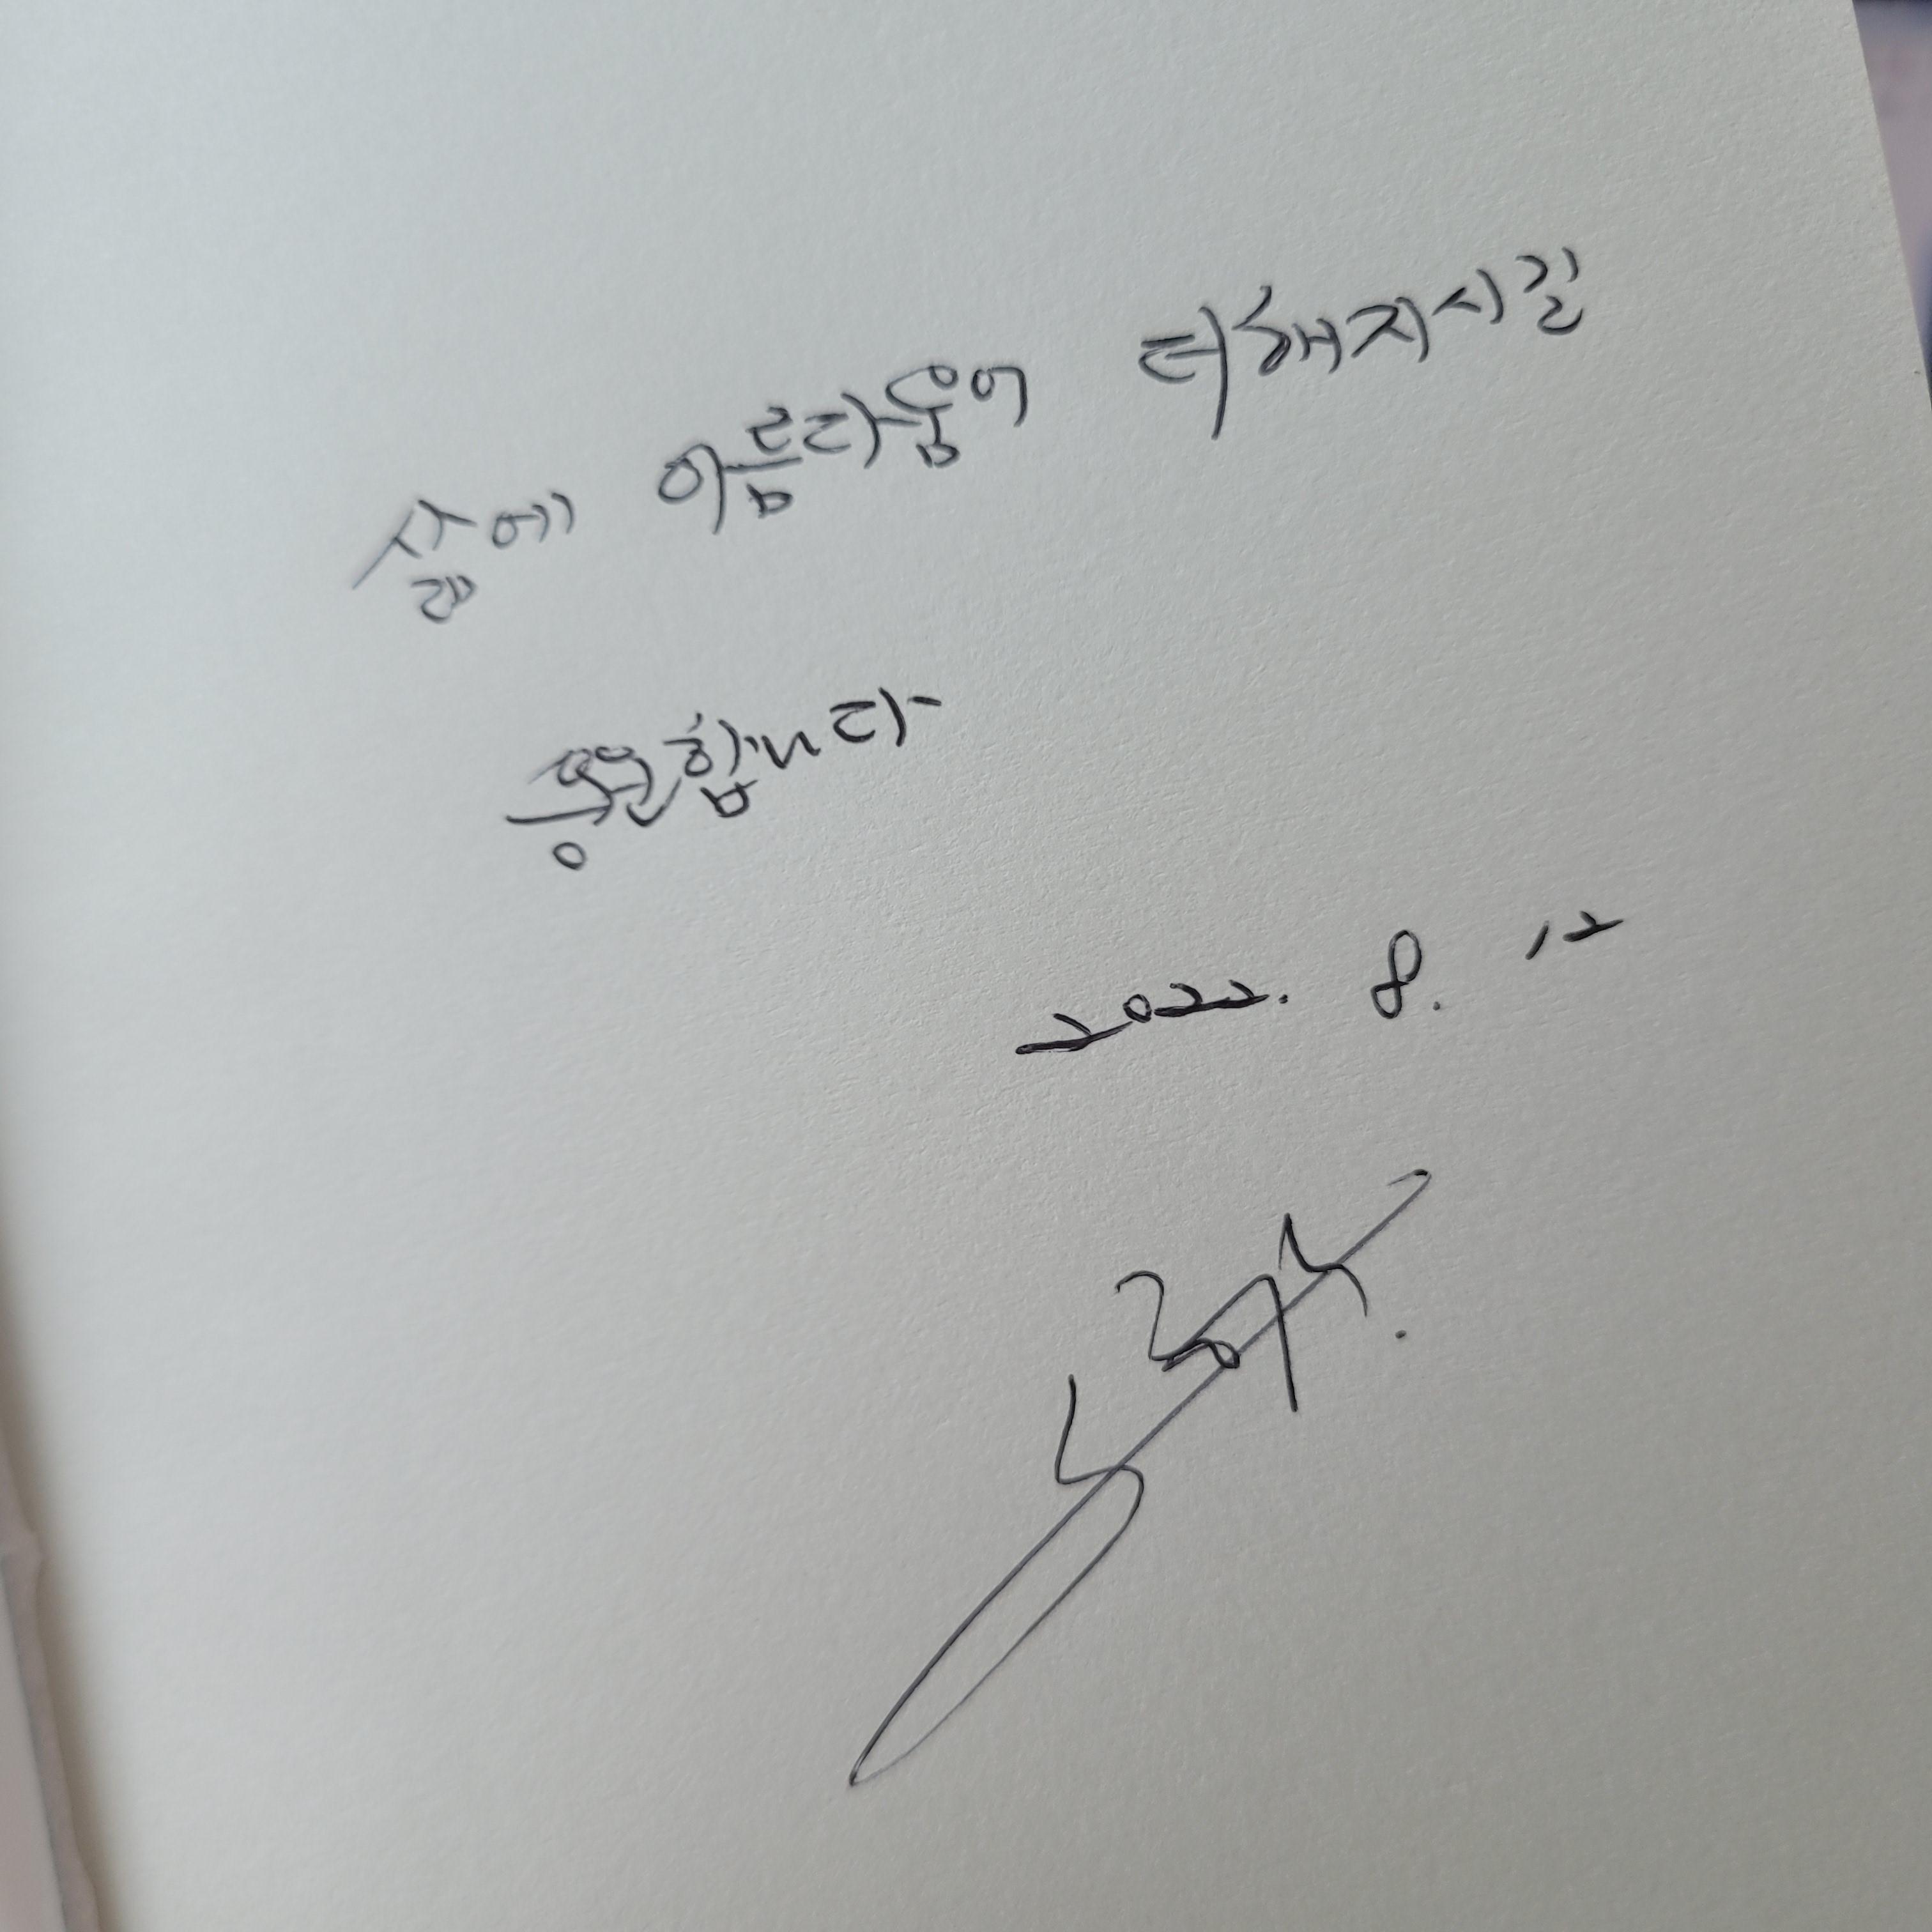 삶에 아름다움이 더해지시길
응원합니다
2022. 8. 12